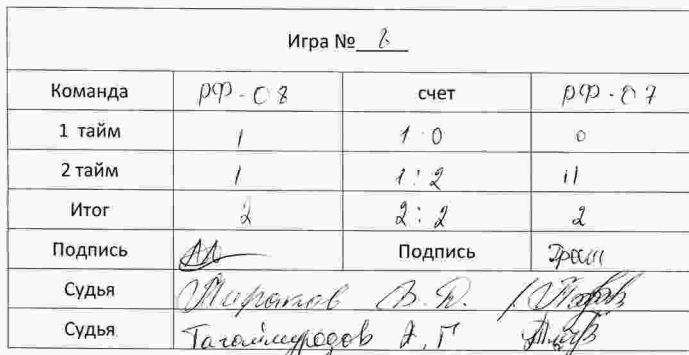 Игра № 8
Команда РФ-08 счет РФ-07
1 тайм 1 1:0 0
2 тайм 1 1:2 11
Итог 2 2:2 2
Подпись Подпись
Судья В.Д.
Судья Тагоймуродов Г